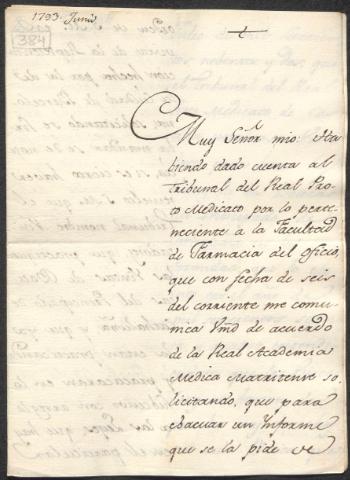 1793. Junio
384
Muy Señor mio: Ha
biendo dado cuenta al
Tribunal del Real Pro
to Medicato por lo perte
neciente a la Facultad
de Farmacia del oficio,
que con fecha de seis
del corriente me comu
nica Vmd de acuerdo
de la Real Academia
Medica Matritense so
licitando, que para
evacuar un Informe
que se la pide de